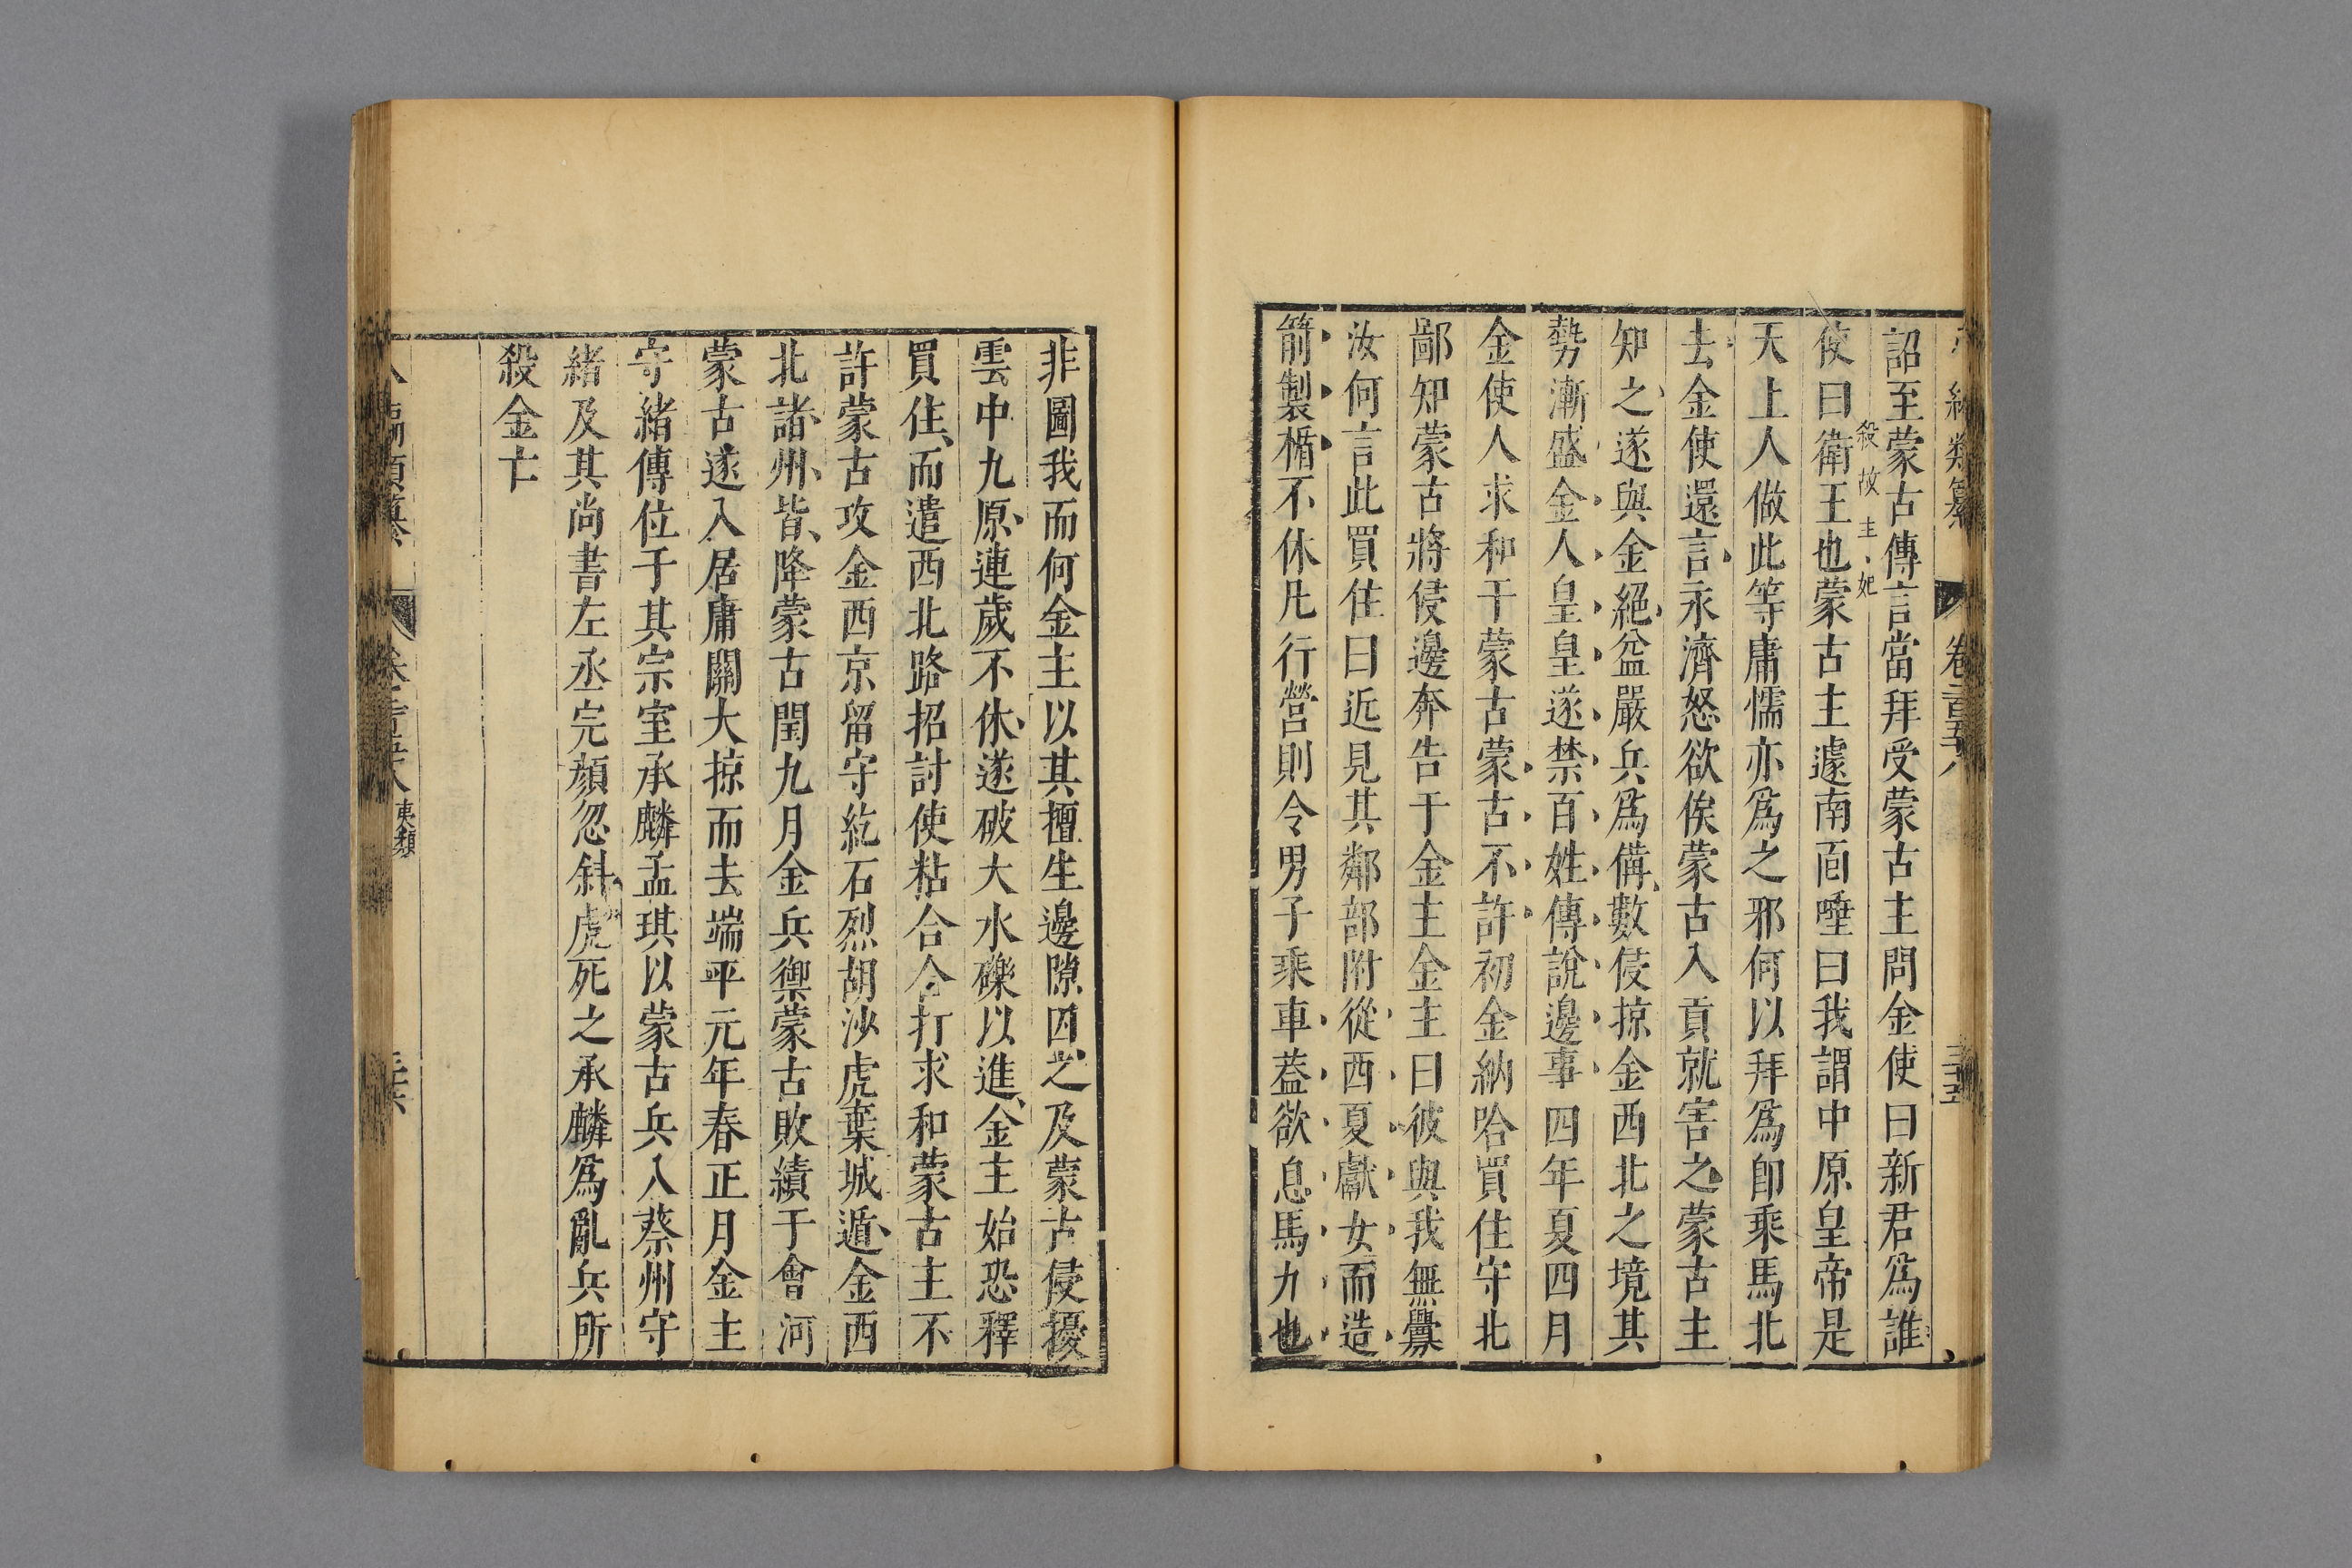 編類纂　卷二百五十八　三十五
詔至蒙古傳言當拜受蒙古主問金使曰新君爲誰
殺故主妃
使曰衛王也蒙古主遽南面唾曰我謂中原皇帝是
天上人做此等庸懦亦爲之邪何以拜爲卽乘馬北
去金使還言永濟怒欲俟蒙古入貢就害之蒙古主
知之遂與金絕益嚴兵爲備數侵掠金西北之境其
勢漸盛金人皇皇遂禁百姓傳說邊事四年夏四月
金使人求和于蒙古蒙古不許初金納哈買住守北
鄙知蒙古將侵邊奔告于金主金主曰彼與我無釁
汝何言此買住曰近見其鄰部附從西夏獻女而造
箭製楯不休凡行營則令男子乘車蓋欲息馬力也
非圖我而何金主以其擅生邊隙囚之及蒙古侵擾
雲中九原連歲不休遂破大水礫以進金主始恐釋
買住而遣西北路招討使粘合合打求和蒙古主不
許蒙古攻金西京留守紇石烈胡沙虎棄城遁金西
北諸州皆降蒙古閏九月金兵禦蒙古敗績于會河
蒙古遂入居庸關大掠而去端平元年春正月金主
守緒傳位于其宗室承麟孟珙以蒙古兵入蔡州守
緒及其尚書左丞完顏忽斜虎死之承麟爲亂兵所
殺金亡
八編類纂　卷二百五十八　夷類　三十六